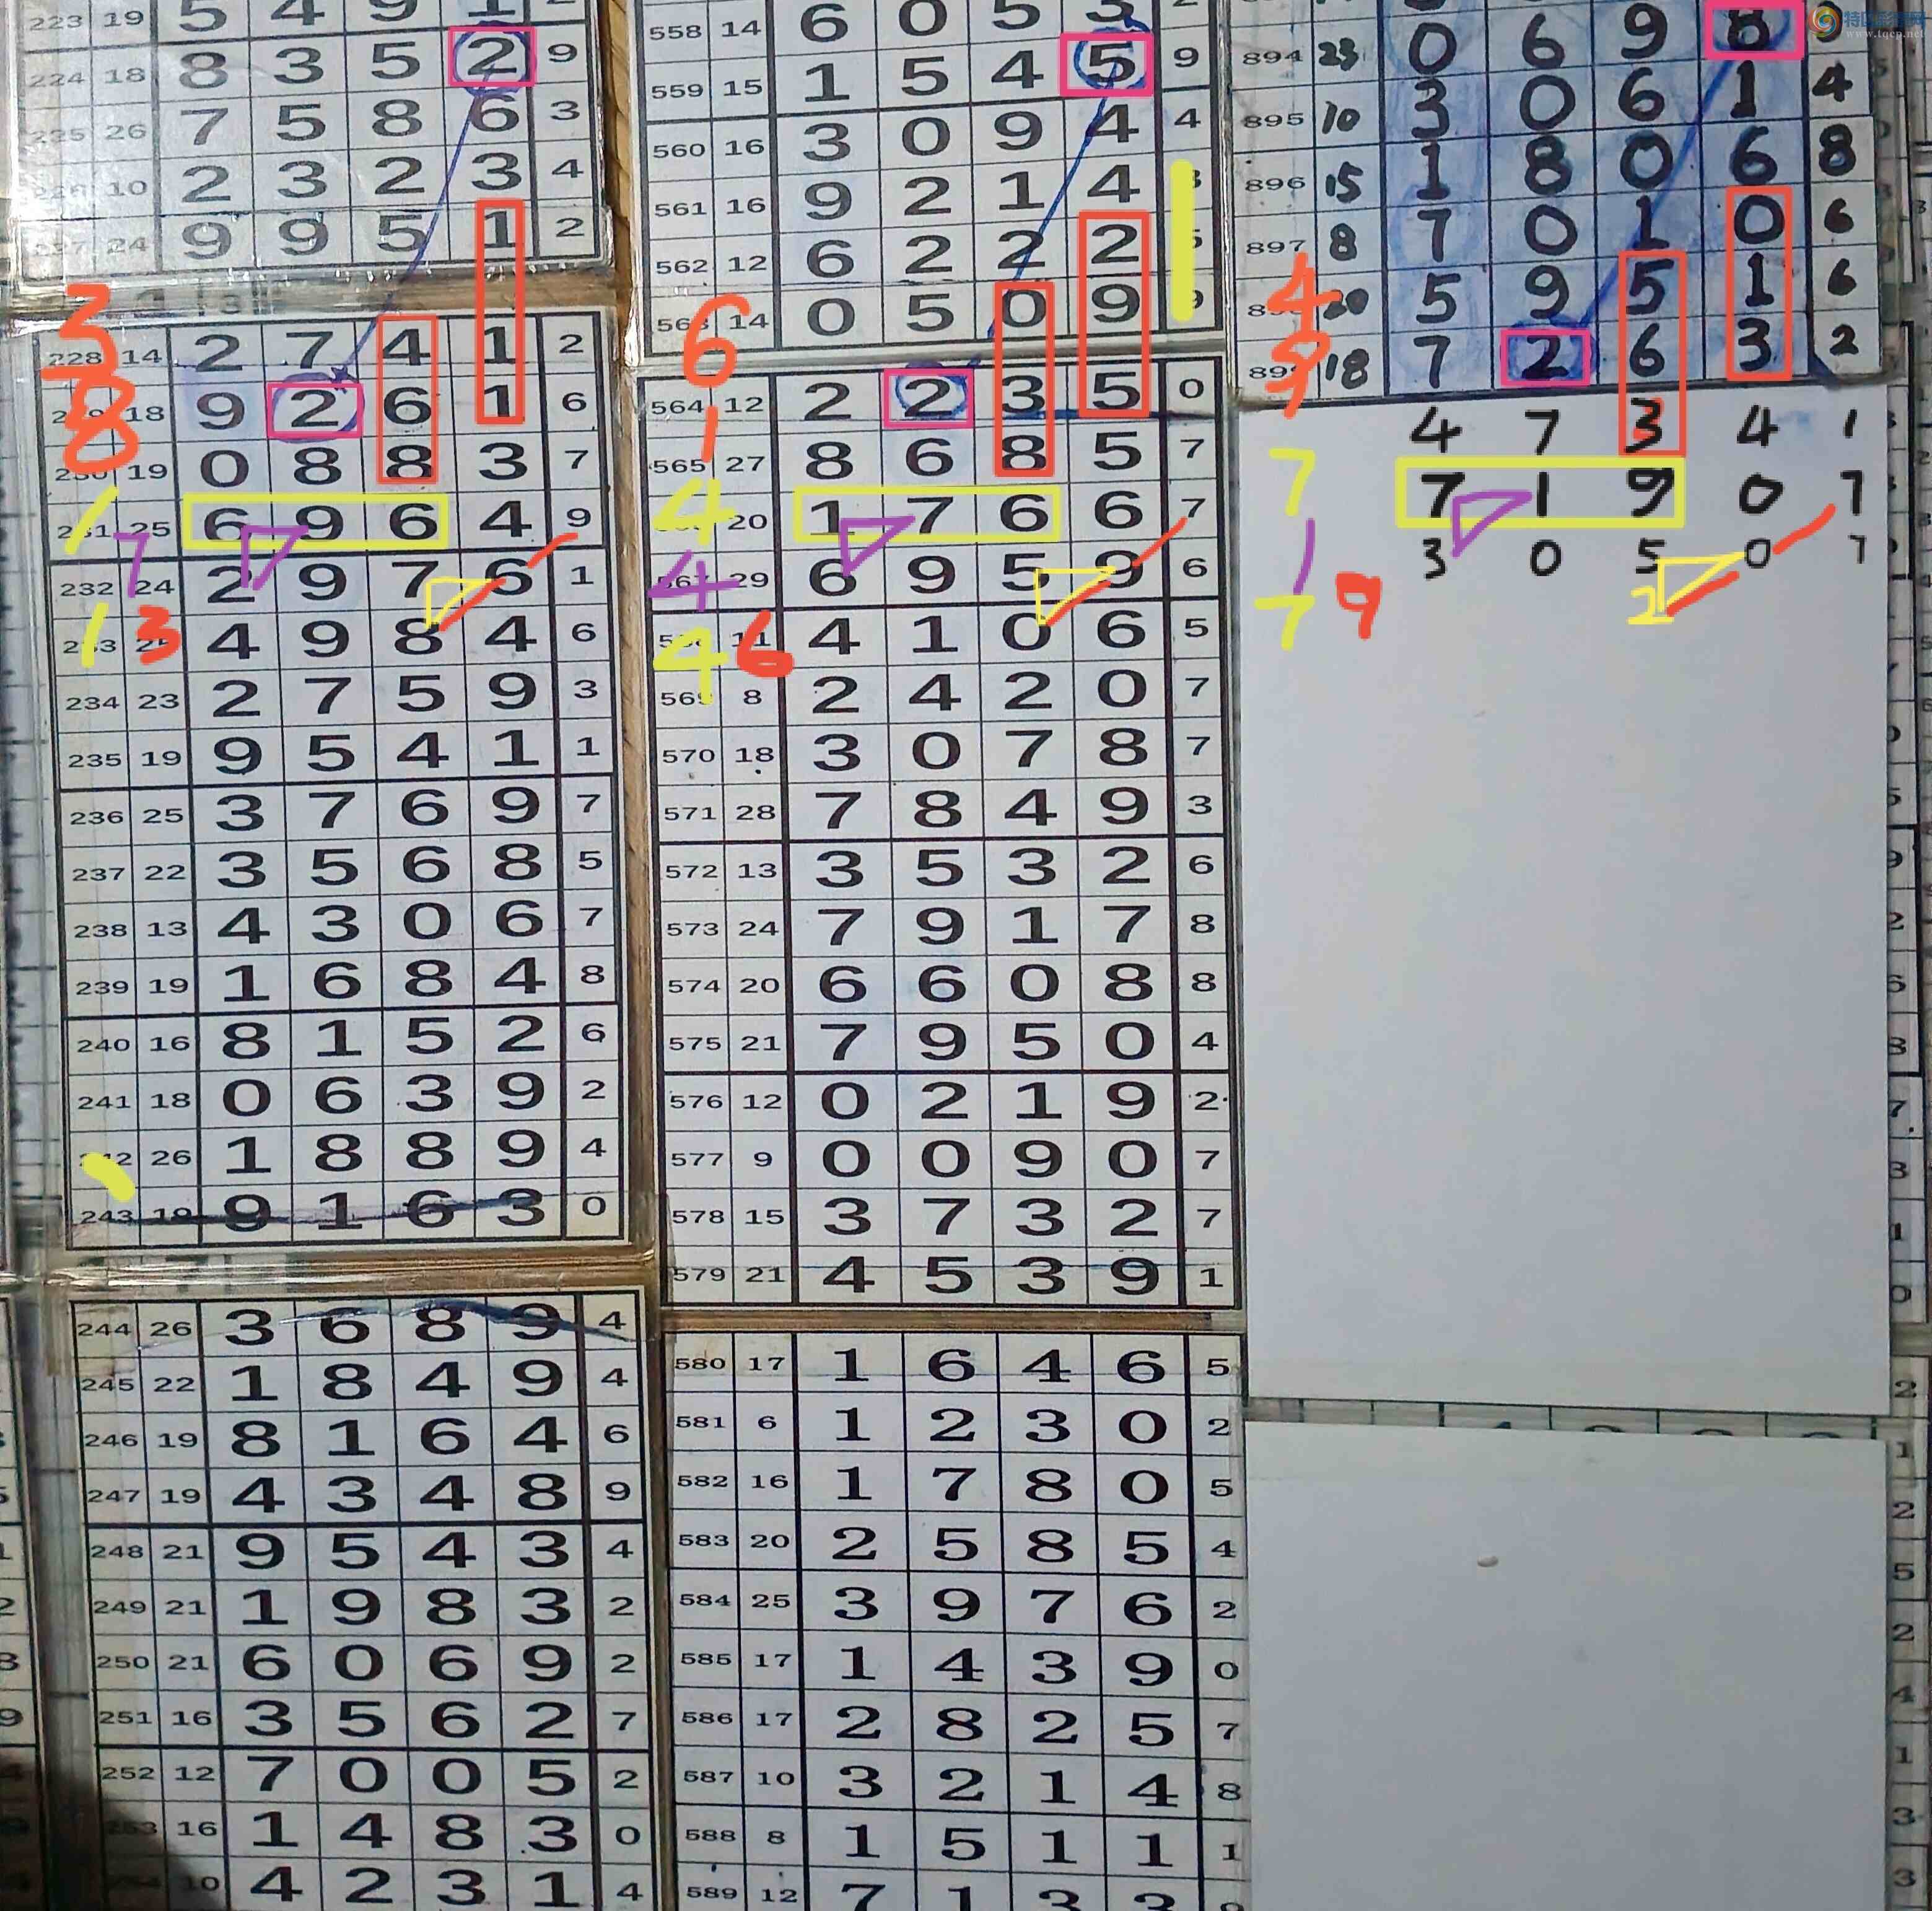 特区彩票网
www.tqcp.net
223 19 5 4 9 1 2
224 18 8 3 5 2 9
26 7 5 8 6 3
10 2 3 2 3 4
24 9 9 5 1 2
3
228 14 2 7 4 1 2
8
18 9 2 6 1 6
19 0 8 8 3 7
1
25 6 9 6 4 9
7
232 24 2 9 7 6 1
1 3
4 9 8 4 6
234 23 2 7 5 9 3
235 19 9 5 4 1 1
236 25 3 7 6 9 7
237 22 3 5 6 8 5
238 13 4 3 0 6 7
239 19 1 6 8 4 8
240 16 8 1 5 2 6
241 18 0 6 3 9 2
26 1 8 8 9 4
243 19 9 1 6 3 0
244 26 3 6 8 9 4
245 22 1 8 4 9 4
246 19 8 1 6 4 6
247 19 4 3 4 8 9
248 21 9 5 4 3 4
249 21 1 9 8 3 2
250 21 6 0 6 9 2
251 16 3 5 6 2 7
252 12 7 0 0 5 2
16 1 4 8 3 0
10 4 2 3 1 4
558 14 6 0 5 3 2
559 15 1 5 4 5 9
560 16 3 0 9 4 4
561 16 9 2 1 4
562 12 6 2 2 2
14 0 5 0 9 9
6
564 12 2 2 3 5 0
1
565 27 8 6 8 5 7
4
20 1 7 6 6 7
4
29 6 9 5 9 6
4 6
11 4 1 0 6 5
8 2 4 2 0 7
570 18 3 0 7 8 7
571 28 7 8 4 9 3
572 13 3 5 3 2 6
573 24 7 9 1 7 8
574 20 6 6 0 8 8
575 21 7 9 5 0 4
576 12 0 2 1 9 2
577 9 0 0 9 0 7
578 15 3 7 3 2 7
579 21 4 5 3 9 1
580 17 1 6 4 6 5
581 6 1 2 3 0 2
582 16 1 7 8 0 5
583 20 2 5 8 5 4
584 25 3 9 7 6 2
585 17 1 4 3 9 0
586 17 2 8 2 5 7
587 10 3 2 1 4 8
588 8 1 5 1 1 1
589 12 7 1 3 3
894 23 0 6 9 8
895 10 3 0 6 1 4
896 15 1 8 0 6 8
897 8 7 0 1 0 6
4
20 5 9 5 1 6
9
18 7 2 6 3 2
4 7 3 4 1
7
7 1 9 0 7
1
3 0 5 0 7
7 9
2